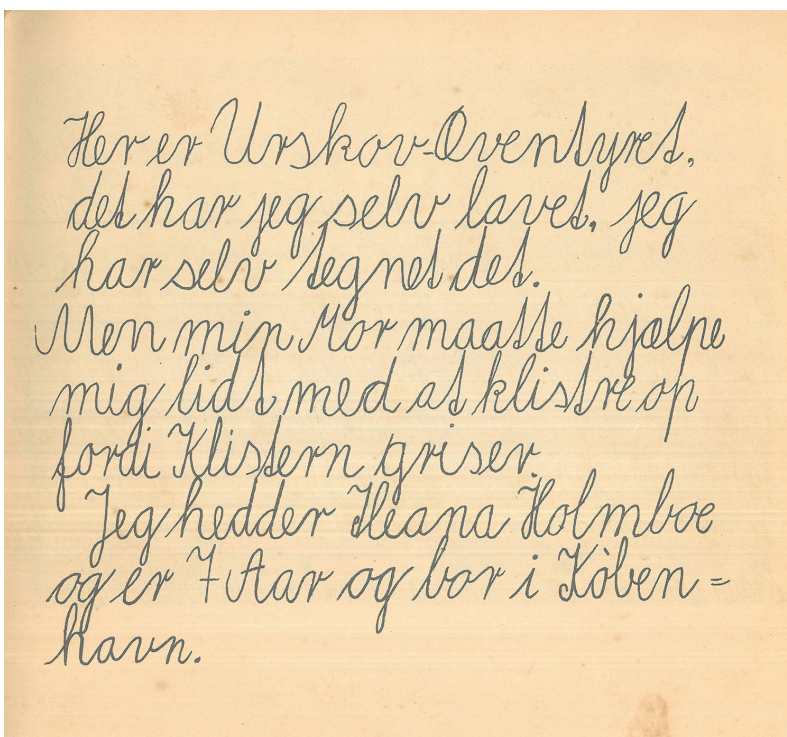 Her er Urskov-Æventyret,
det har jeg selv lavet, jeg
har selv tegnet det.
Men min Mor maatte hjælpe
mig lidt med at klistre op
fordi Klistern griser.
Jeg hedder Ileana Holmboe
og er 7 Aar og bor i Köben=
havn.